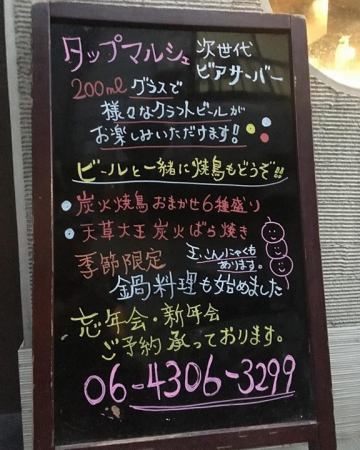 タップマルシェ 次世代
ビアサーバー
200ml グラスで
様々なクラフトビールが
お楽しみいただけます!!
ビールと一緒に焼鳥もどうぞ!!
炭火焼鳥おまかせ6種盛り
天草大王 炭火ばら焼き
季節限定 玉こんにゃくも
あります。
鍋料理も始めました
忘年会・新年会
ご予約承っております。
06-4306-3299